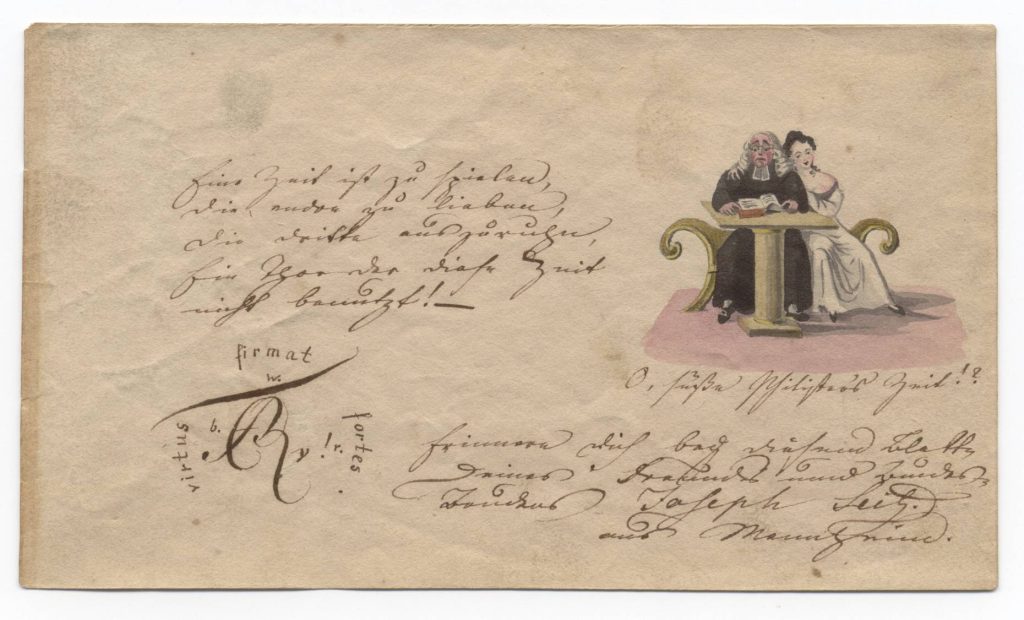 Eine Zeit ist zu spielen,
die andre zu lieben,
die dritte auszuruhn,
Ein Thor der diese Zeit
nicht benutzt! —
O, süße Philisters Zeit!?
firmat
w.
virtus
b.
!r.
fortes
Erinnere dich bey diesem Blatte
Deines Freundes und Bundes-
Bruders Joseph Seitz.
aus Mannheim.